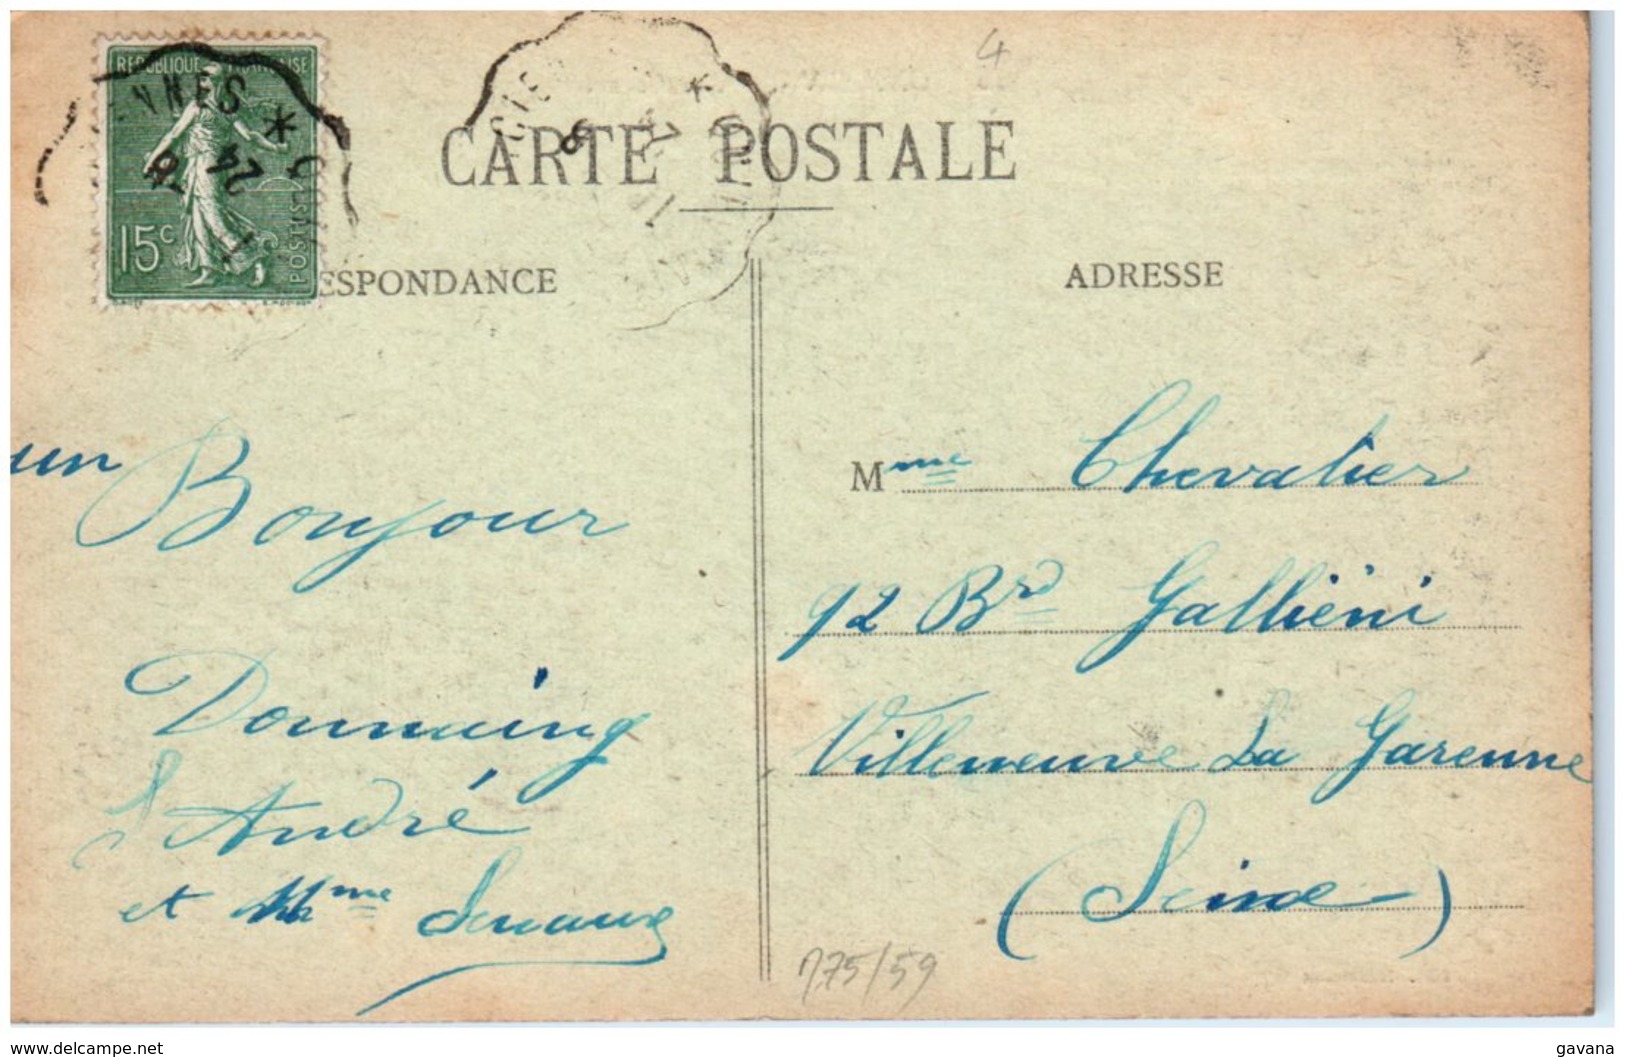 REPUBLIQUE FRANÇAISE
15c
POSTES
NNES *
24
CARTE POSTALE
ESPONDANCE
ADRESSE
4
un Bonjour
Donnaing
André
et Mme
Mme Chevalier
92 Brd Galliéni
Villeneuve La Garenne
(Seine)
775/59
www.delcampe.net
gavana